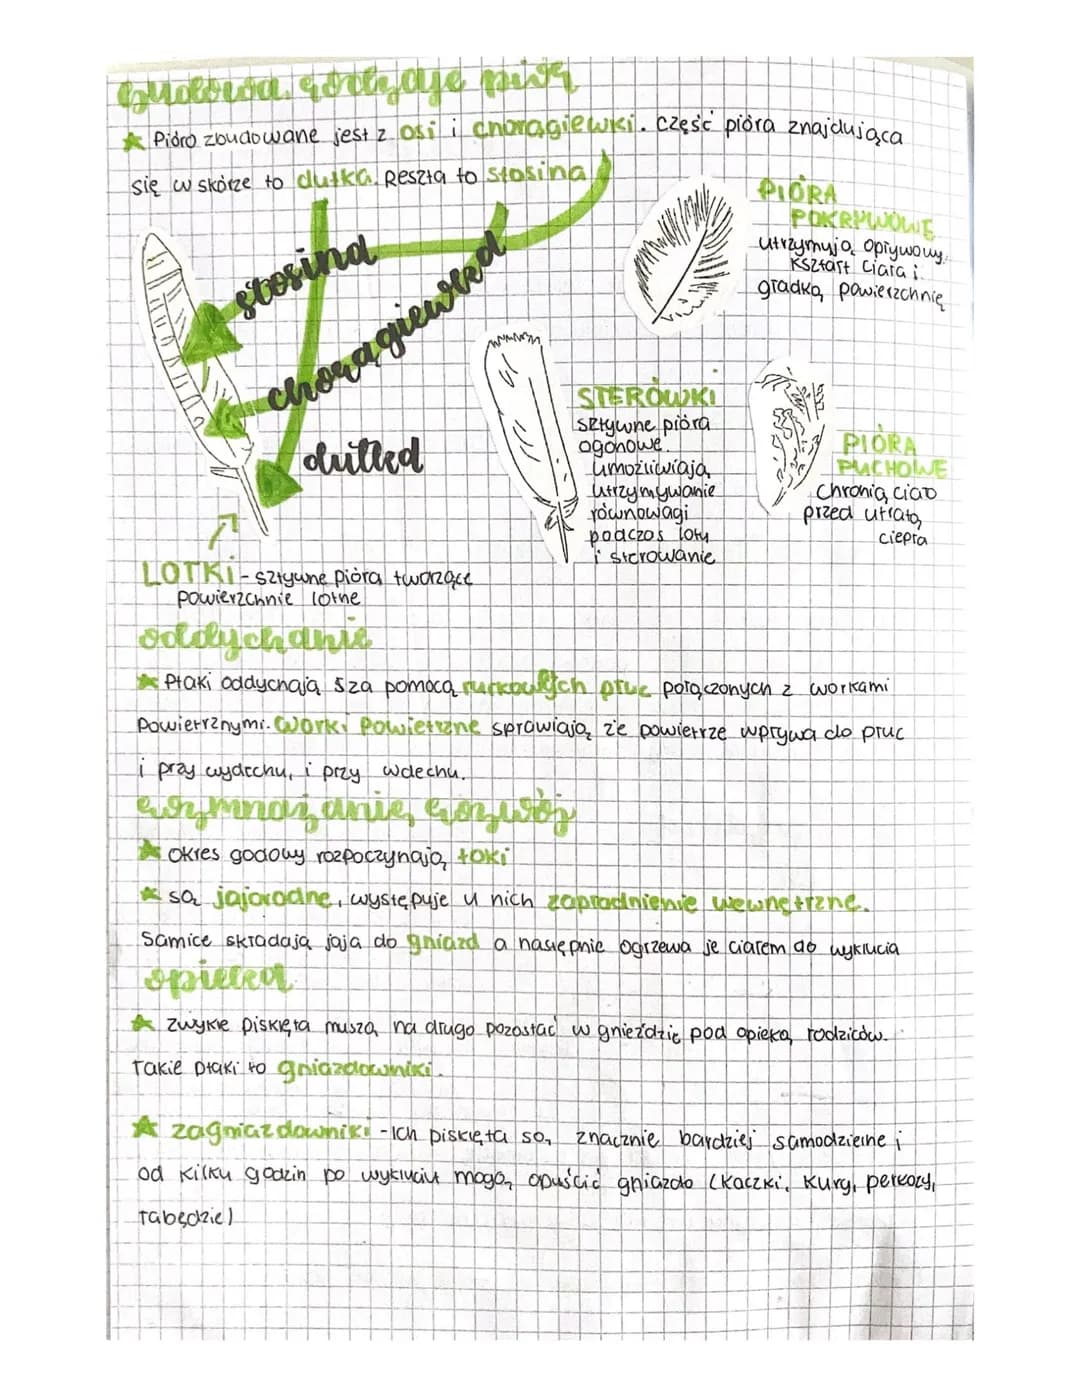 budowa, rodzaje piór
Pióro zbudowane jest z osi i chorągiewki. część pióra znajdująca
się w skórze to dutka. Reszta to stosina
stosina
chorągiewka
dutka
PIÓRA
POKRYWOWE
utrzymują opływowy
kształt ciała i
gładką powierzchnię
STERÓWKI
sztywne pióra
ogonowe.
umożliwiają
utrzymywanie
równowagi
podczas lotu
i sterowanie
PIÓRA
PUCHOWE
chronią ciało
przed utratą
ciepła
LOTKI - sztywne pióra tworzące
powierzchnie lotne
oddychanie
Ptaki oddychają sza pomocą rurkowatych płuc połączonych z workami
powietrznymi. Worki powietrzne sprawiają, że powietrze wpływa do płuc
i przy wydechu, i przy wdechu.
rozmnażanie, rozwój
okres godowy rozpoczynają toki
są jajorodne, występuje u nich zapłodnienie wewnętrzne.
Samice składają jaja do gniazd a nasępnie ogrzewa je ciałem do wyklucia
opieka
zwykle pisklęta muszą na długo pozostać w gnieździe pod opieką rodziców.
Takie ptaki to gniazdowniki.
zagniazdowniki - Ich pisklęta są znacznie bardziej samodzielne i
od kilku godzin po wykluciu mogą opuścić gniazdo (kaczki, kury, perkozy,
łabędzie)